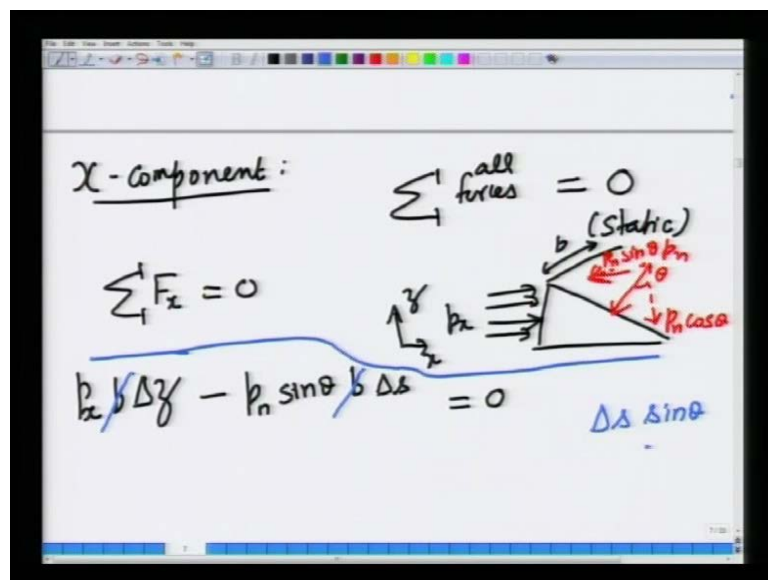 File Edit View Insert Actions Tools Help
X-component:
∑ all forces = 0
(static)
∑ F_x = 0
b
p_n sinθ p_n
θ
z
x
p_x
p_n cosθ
p_x b Δz − p_n sinθ b Δs = 0
Δs sinθ
7